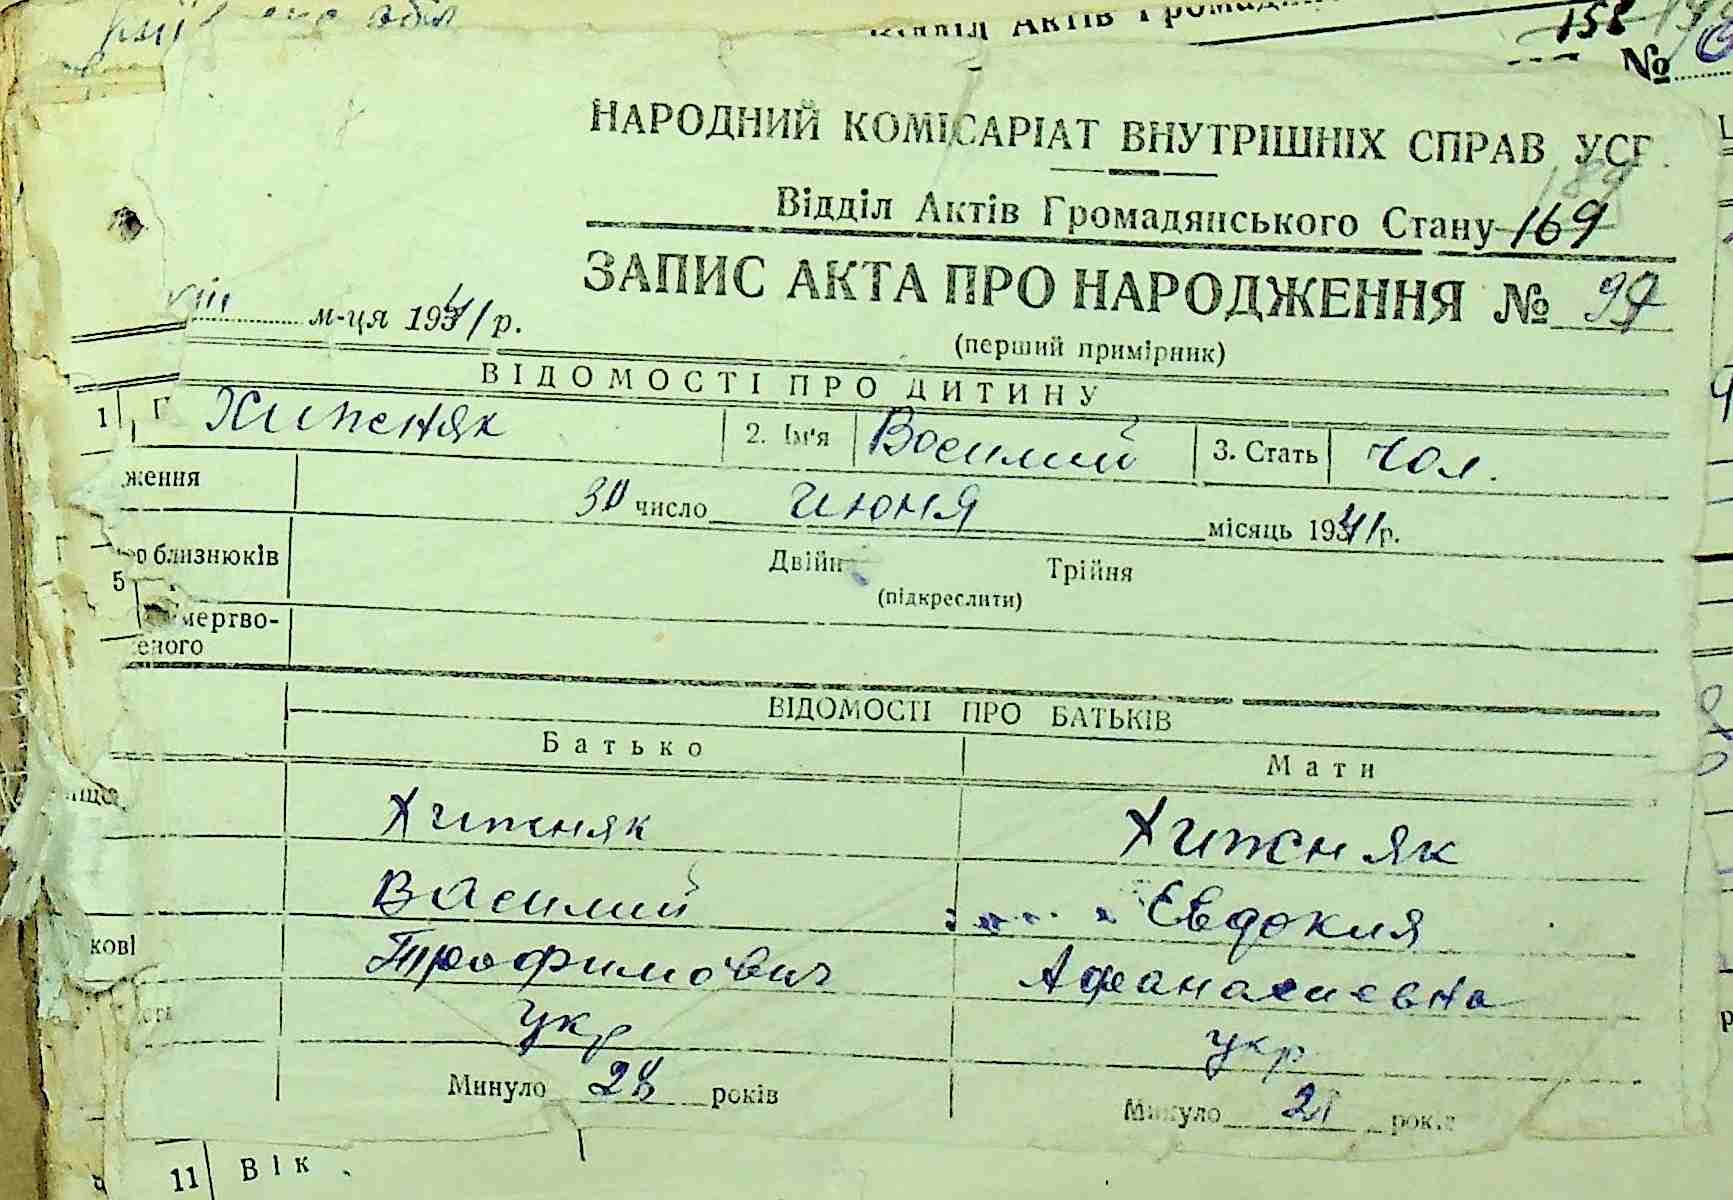 Відділ Актів Громадян
158
№
НАРОДНИЙ КОМІСАРІАТ ВНУТРІШНІХ СПРАВ УСР
189
Відділ Актів Громадянського Стану 169
ЗАПИС АКТА ПРО НАРОДЖЕННЯ №
м-ця 1941 р.
(перший примірник)
ВІДОМОСТІ ПРО ДИТИНУ
1 Хижняк 2. Ім'я Василий 3. Стать чол.
ження 30 число июня місяць 1941 р.
о близнюків Двійн Трійня
5 (підкреслити)
мертво-
еного
ВІДОМОСТІ ПРО БАТЬКІВ
Батько Мати
Хижняк Хижняк
Василий Евдокия
кові Трофимович Афанасиевна
укр укр
Минуло 28 років Минуло 21 років
11 Вік